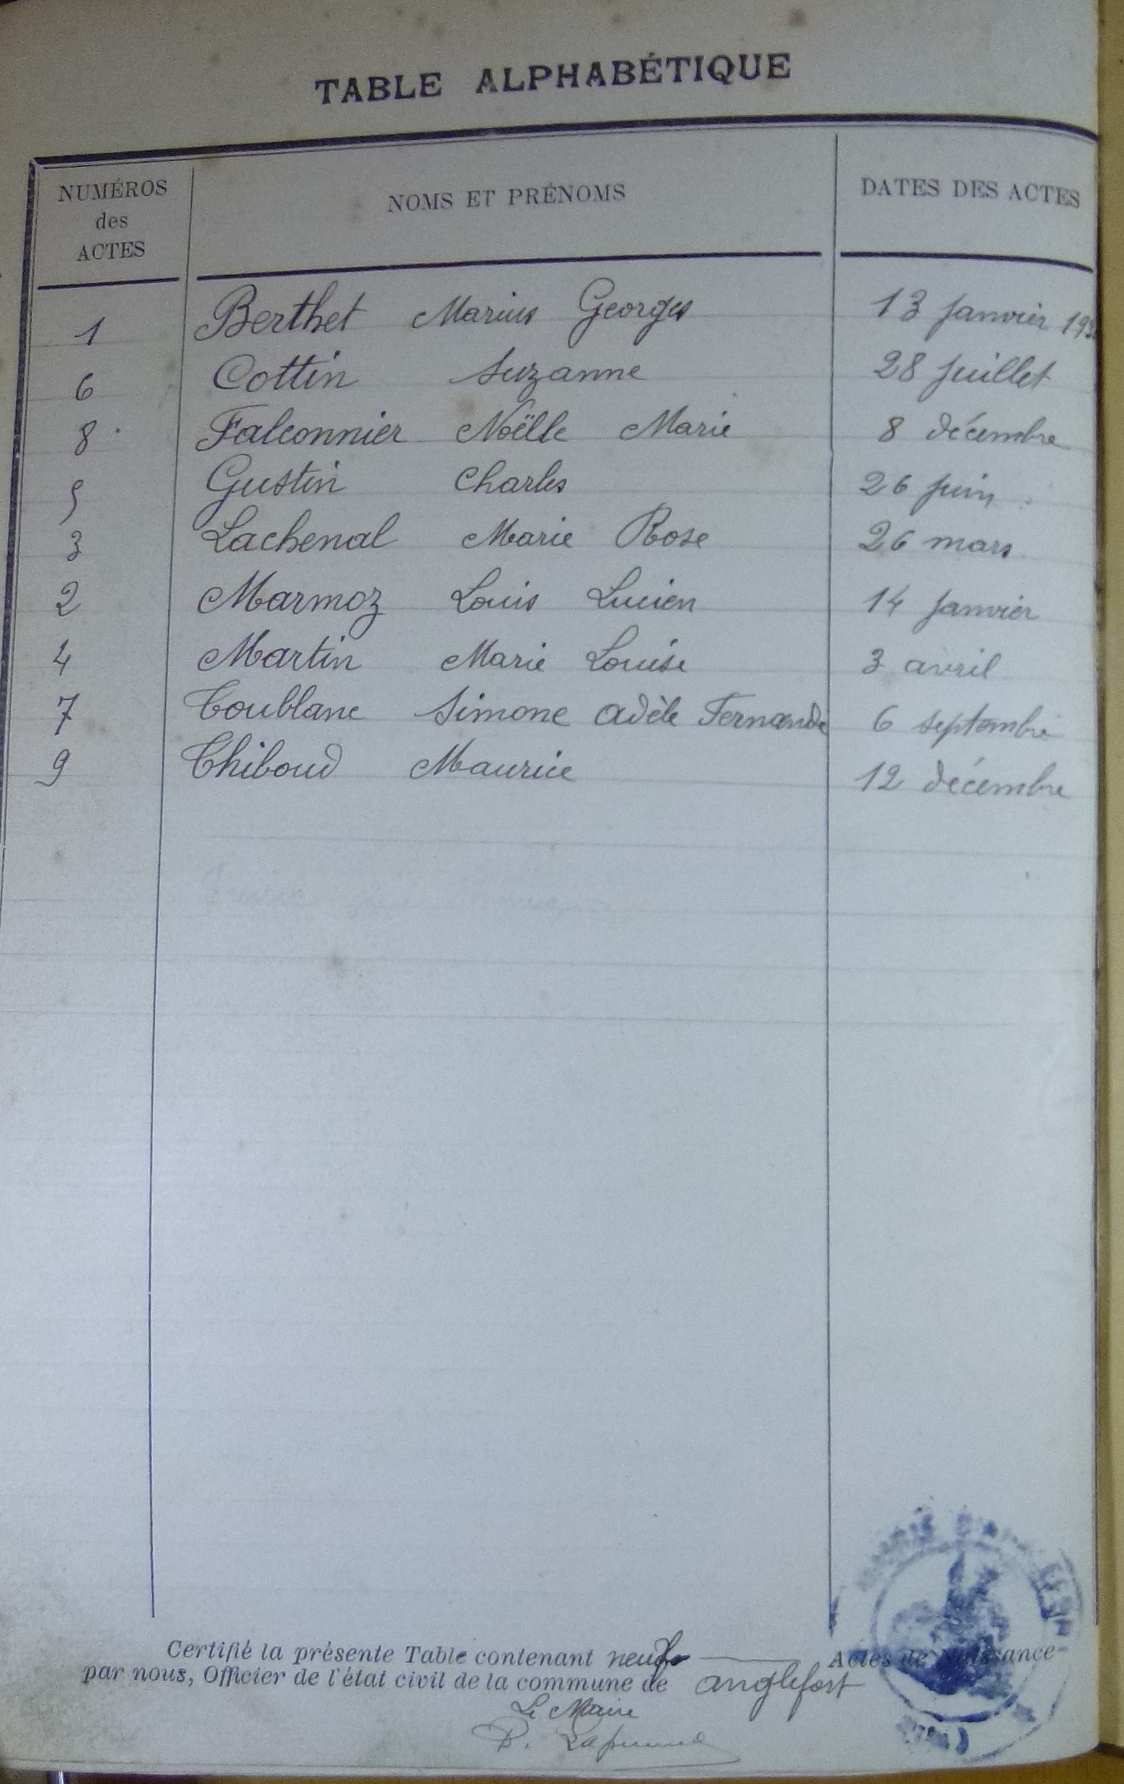 TABLE ALPHABÉTIQUE
NUMÉROS des ACTES NOMS ET PRÉNOMS DATES DES ACTES
1 Berthet Marius Georges 13 janvier
6 Cottin Suzanne 28 juillet
8 Falconnier Noëlle Marie 8 décembre
5 Gustin Charles 26 juin
3 Lachenal Marie Rose 26 mars
2 Marmoz Louis Lucien 14 janvier
4 Martin Marie Louise 3 avril
7 Toublanc Simone Adèle Fernande 6 septembre
9 Thiboud Maurice 12 décembre
Certifié la présente Table contenant neuf Actes de Naissance
par nous, Officier de l'état civil de la commune de Anglefort
Le Maire